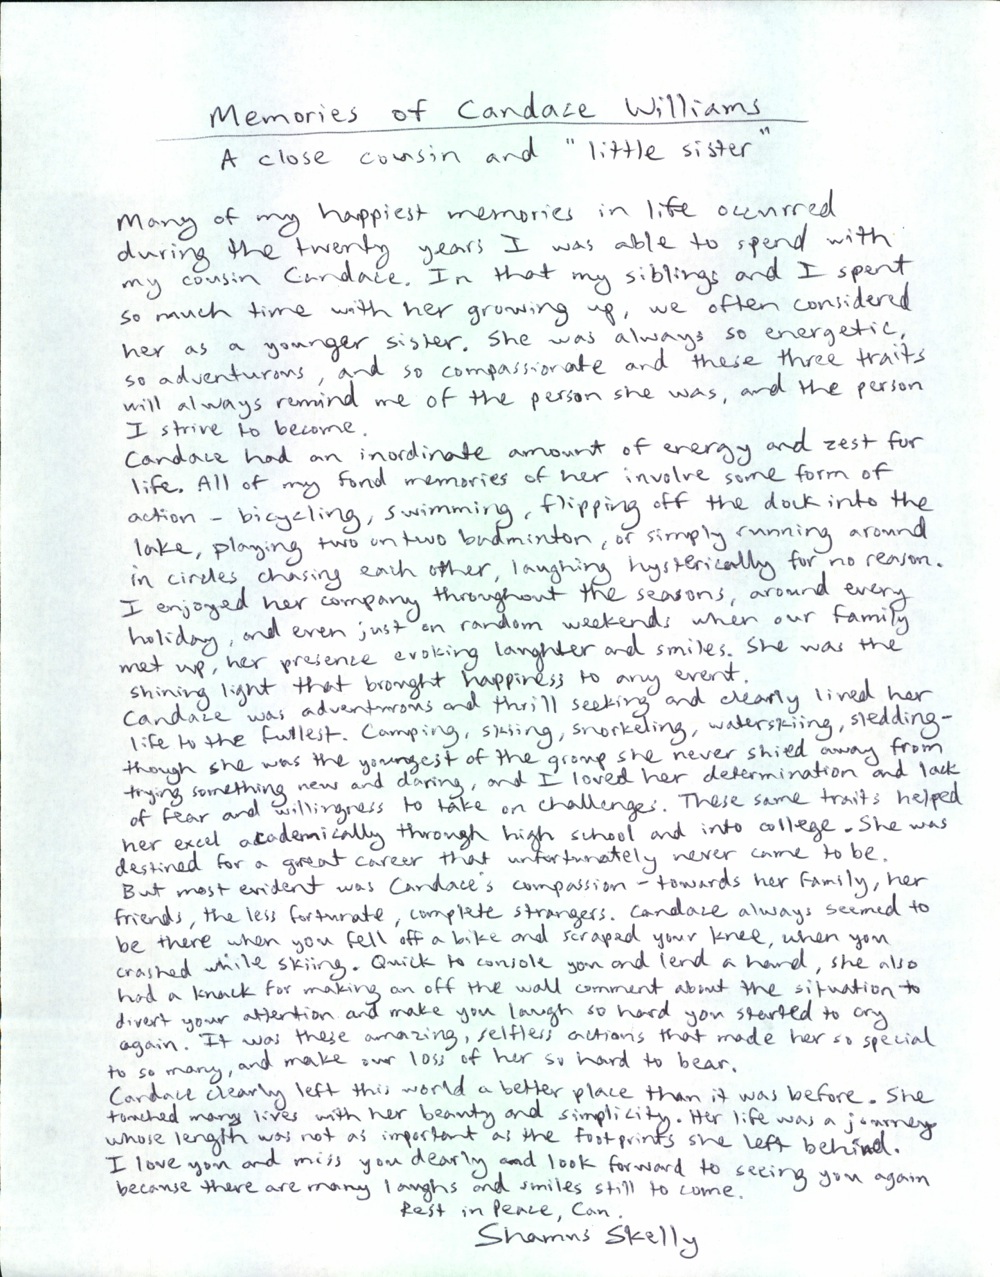 Memories of Candace Williams
A close cousin and "little sister"
Many of my happiest memories in life occurred
during the twenty years I was able to spend with
my cousin Candace. In that my siblings and I spent
so much time with her growing up, we often considered
her as a younger sister. She was always so energetic,
so adventurous, and so compassionate and these three traits
will always remind me of the person she was, and the person
I strive to become.
Candace had an inordinate amount of energy and zest for
life. All of my fond memories of her involve some form of
action - bicycling, swimming, flipping off the dock into the
lake, playing two on two badminton, or simply running around
in circles chasing each other, laughing hysterically for no reason.
I enjoyed her company throughout the seasons, around every
holiday, and even just on random weekends when our family
met up, her presence evoking laughter and smiles. She was the
shining light that brought happiness to any event.
Candace was adventurous and thrill seeking and clearly lived her
life to the fullest. Camping, skiing, snorkeling, waterskiing, sledding-
though she was the youngest of the group she never shied away from
trying something new and daring, and I loved her determination and lack
of fear and willingness to take on challenges. These same traits helped
her excel academically through high school and into college. She was
destined for a great career that unfortunately never came to be.
But most evident was Candace's compassion - towards her family, her
friends, the less fortunate, complete strangers. Candace always seemed to
be there when you fell off a bike and scraped your knee, when you
crashed while skiing. Quick to console you and lend a hand, she also
had a knack for making an off the wall comment about the situation to
divert your attention and make you laugh so hard you started to cry
again. It was these amazing, selfless actions that made her so special
to so many, and make our loss of her so hard to bear.
Candace clearly left this world a better place than it was before. She
touched many lives with her beauty and simplicity. Her life was a journey
whose length was not as important as the footprints she left behind.
I love you and miss you dearly and look forward to seeing you again
because there are many laughs and smiles still to come.
Rest in Peace, Can.
Shamus Skelly